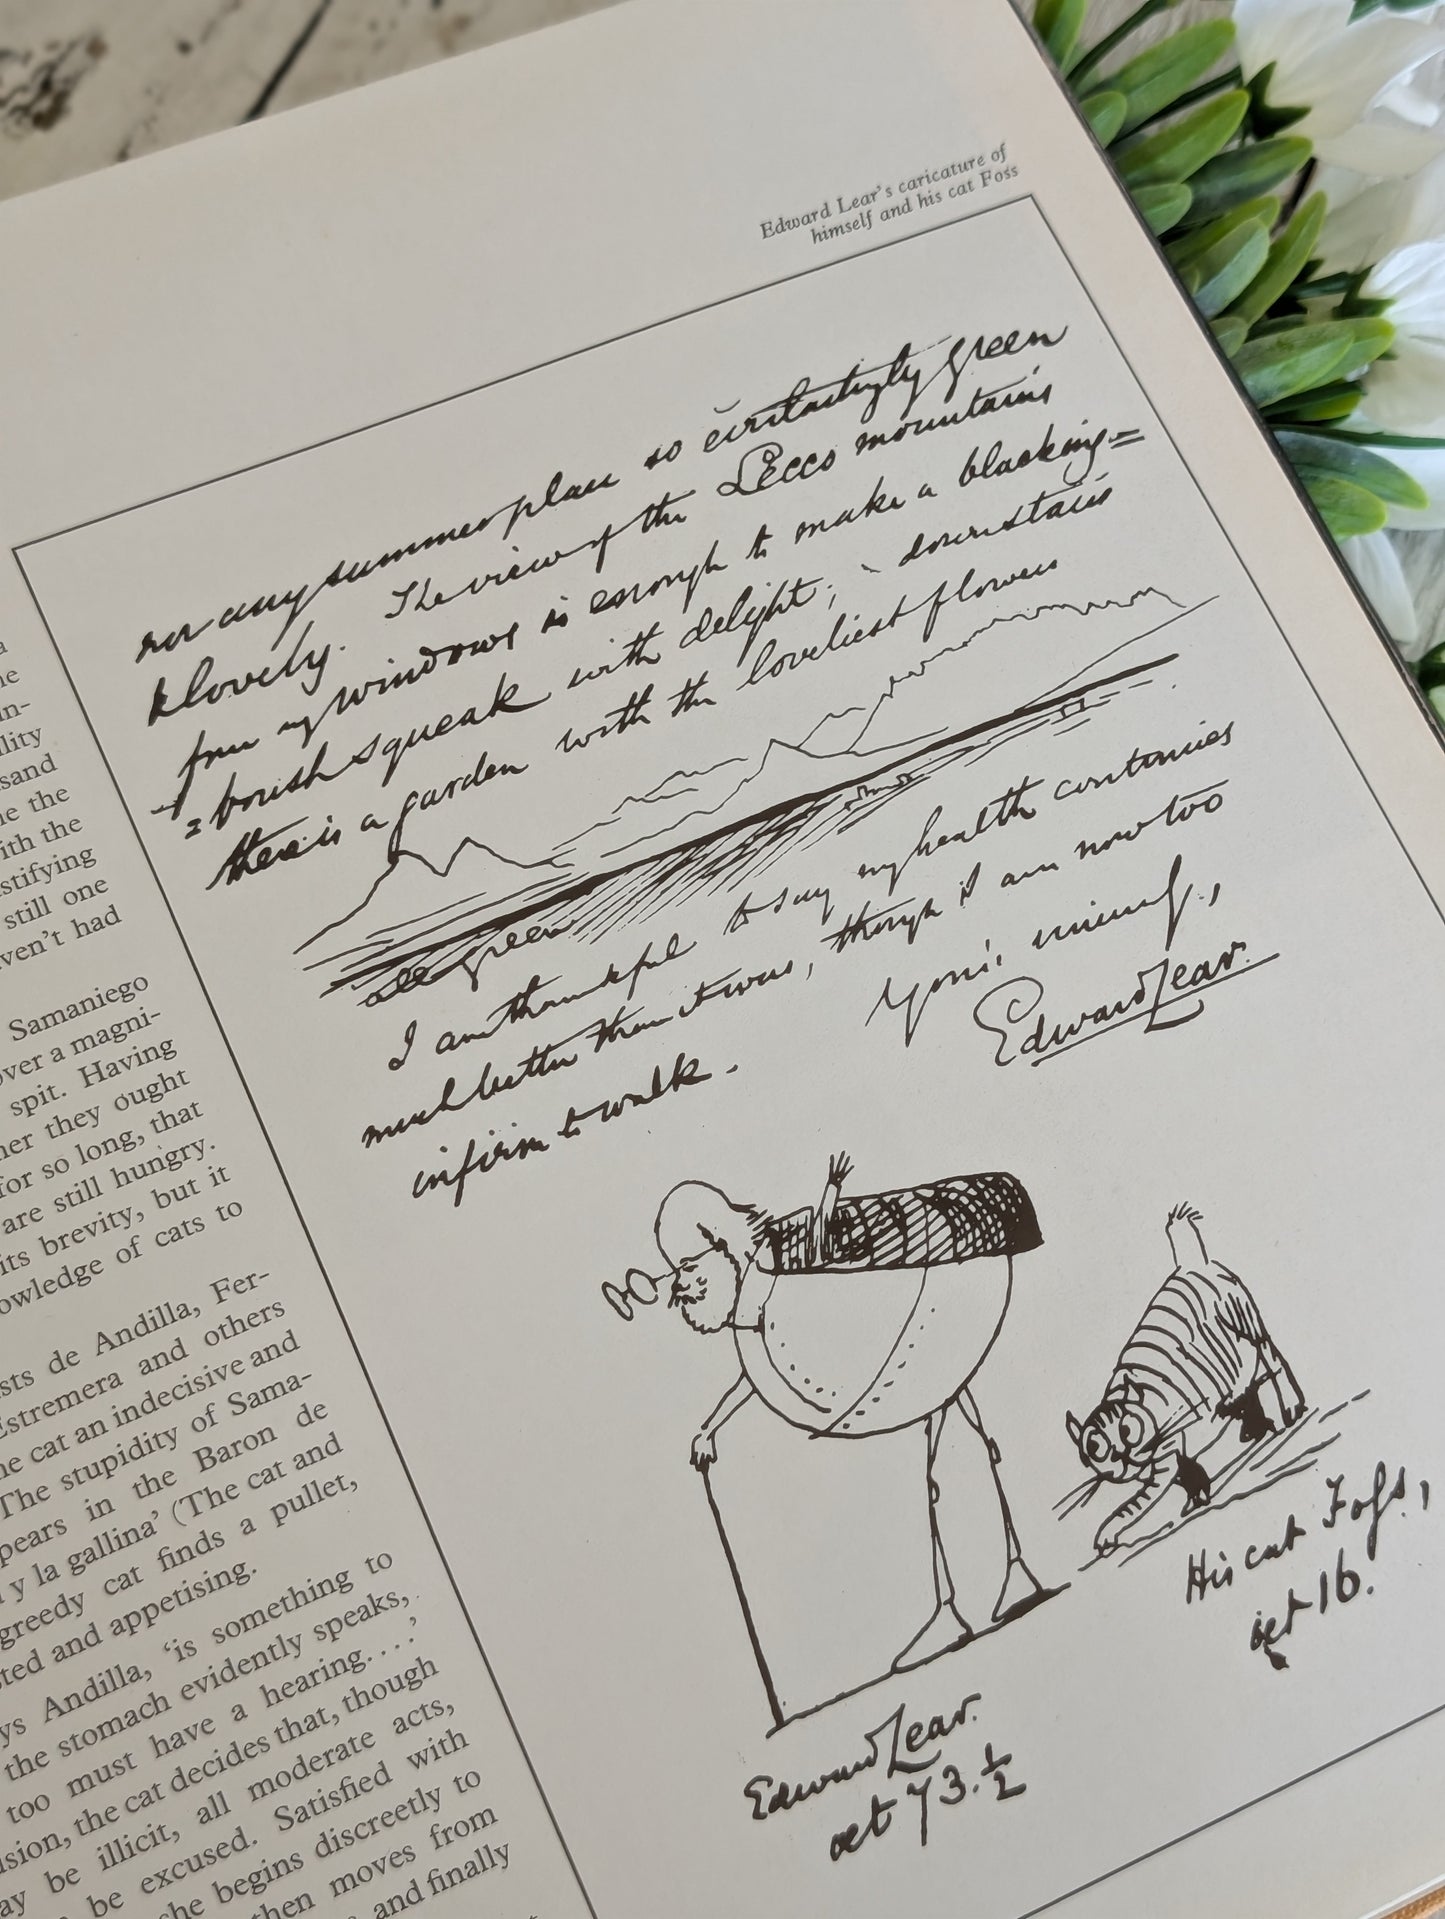 Edward Lear's caricature of
himself and his cat Foss
any summer place so everlastingly green
& lovely. The view of the Lecco mountains
from my windows is enough to make a blacking=
=brush squeak with delight; downstairs
there is a garden with the loveliest flowers
all green
I am thankful to say my health continues
much better than it was, though I am now too
infirm to walk.
Yours sincerely,
Edward Lear.
His cat Foss,
æt 16.
Edward Lear.
æt 73.½
the
lity
sand
the
ith the
still one
haven't had
Samaniego
over a magni-
spit. Having
they ought
for so long, that
are still hungry.
its brevity, but it
of cats to
de Andilla, Fer-
Estremera and others
cat an indecisive and
The stupidity of Sama-
in the Baron de
y la gallina' (The cat and
greedy cat finds a pullet,
and appetising.
Andilla, 'is something to
the stomach evidently speaks,
too must have a hearing. . . .'
the cat decides that, though
be illicit, all moderate acts,
be excused. Satisfied with
she begins discreetly to
then moves from
and finally